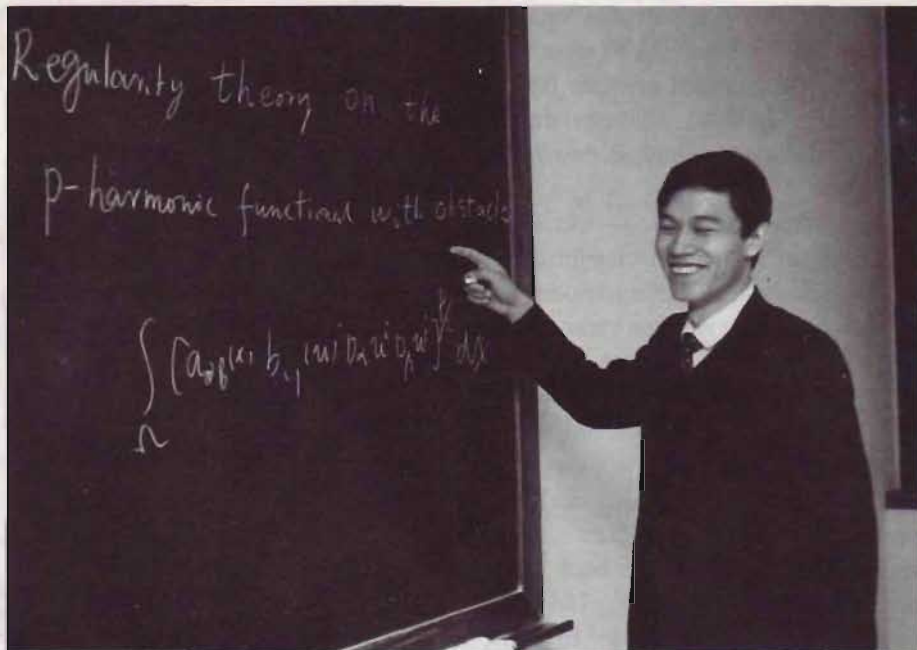 Regularity theory on the
p-harmonic functional with obstacle
∫_Ω [a_{αβ}(x) b_{ij}(u) D_α u^i D_β u^j]^{p/2} dx